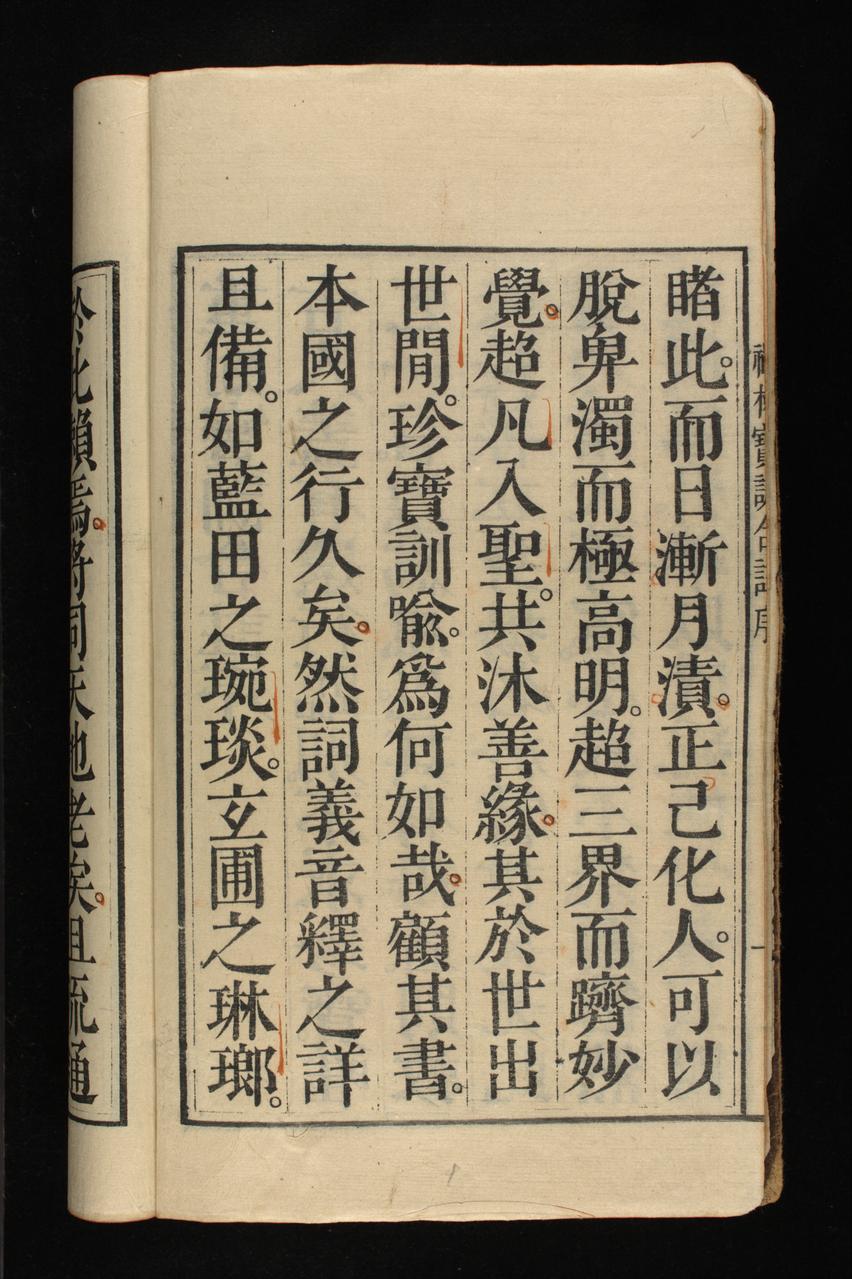 禪林寶訓合註序
睹此。而日漸月漬。正己化人。可以
脫卑濁而極高明。超三界而躋妙
覺。超凡入聖。共沐善緣。其於世出
世閒。珍寶訓喩。爲何如哉。顧其書。
本國之行久矣。然詞義音釋之詳
且備。如藍田之琬琰。玄圃之琳瑯。
於此賴焉。將同天地老矣。且流通